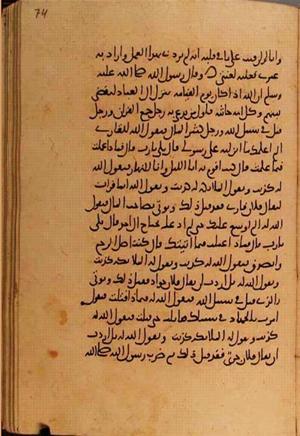 74
وانا الرقيب على ما في قلبه انه لم يرد بهذا العمل واراد به
غيري فعليه لعنتي وقال رسول الله صلى الله عليه
وسلم ان الله اذا كان يوم القيامة ينزل الى العباد ليقضي
بينهم وكل امة جاثية فاول من يدعى به رجل جمع القران ورجل
قتل في سبيل الله ورجل كثير المال فيقول الله للقارئ
الم اعلمك ما انزلت على رسولي قال بلى يارب قال فماذا عملت
فيما علمت قال كنت اقوم به اناء الليل واناء النهار فيقول الله
له كذبت ويقول الملائكة كذبت ويقول الله انما قرات
ليقال فلان قارئ فقد قيل ذلك ويوتى بصاحب المال فيقول
الله له الم اوسع عليك حتى لم ادعك تحتاج الى احد قال بلى
يارب قال فماذا عملت فيما اتيتك قال كنت اصل الرحم
واتصدق فيقول الله له كذبت ويقول له الملائكة كذبت
ويقول الله له بل اردت ان يقال فلان جواد فقد قيل ذلك ويوتى
بالذي قتل في سبيل الله فيقول الله له فيماذا قتلت فيقول
امرت بالجهاد في سبيلك فقاتلت حتى قتلت فيقول الله له
كذبت ويقول له الملائكة كذبت ويقول الله له بل اردت
ان يقال فلان جرئ فقد قيل ذلك ثم ضرب رسول الله صلى الله